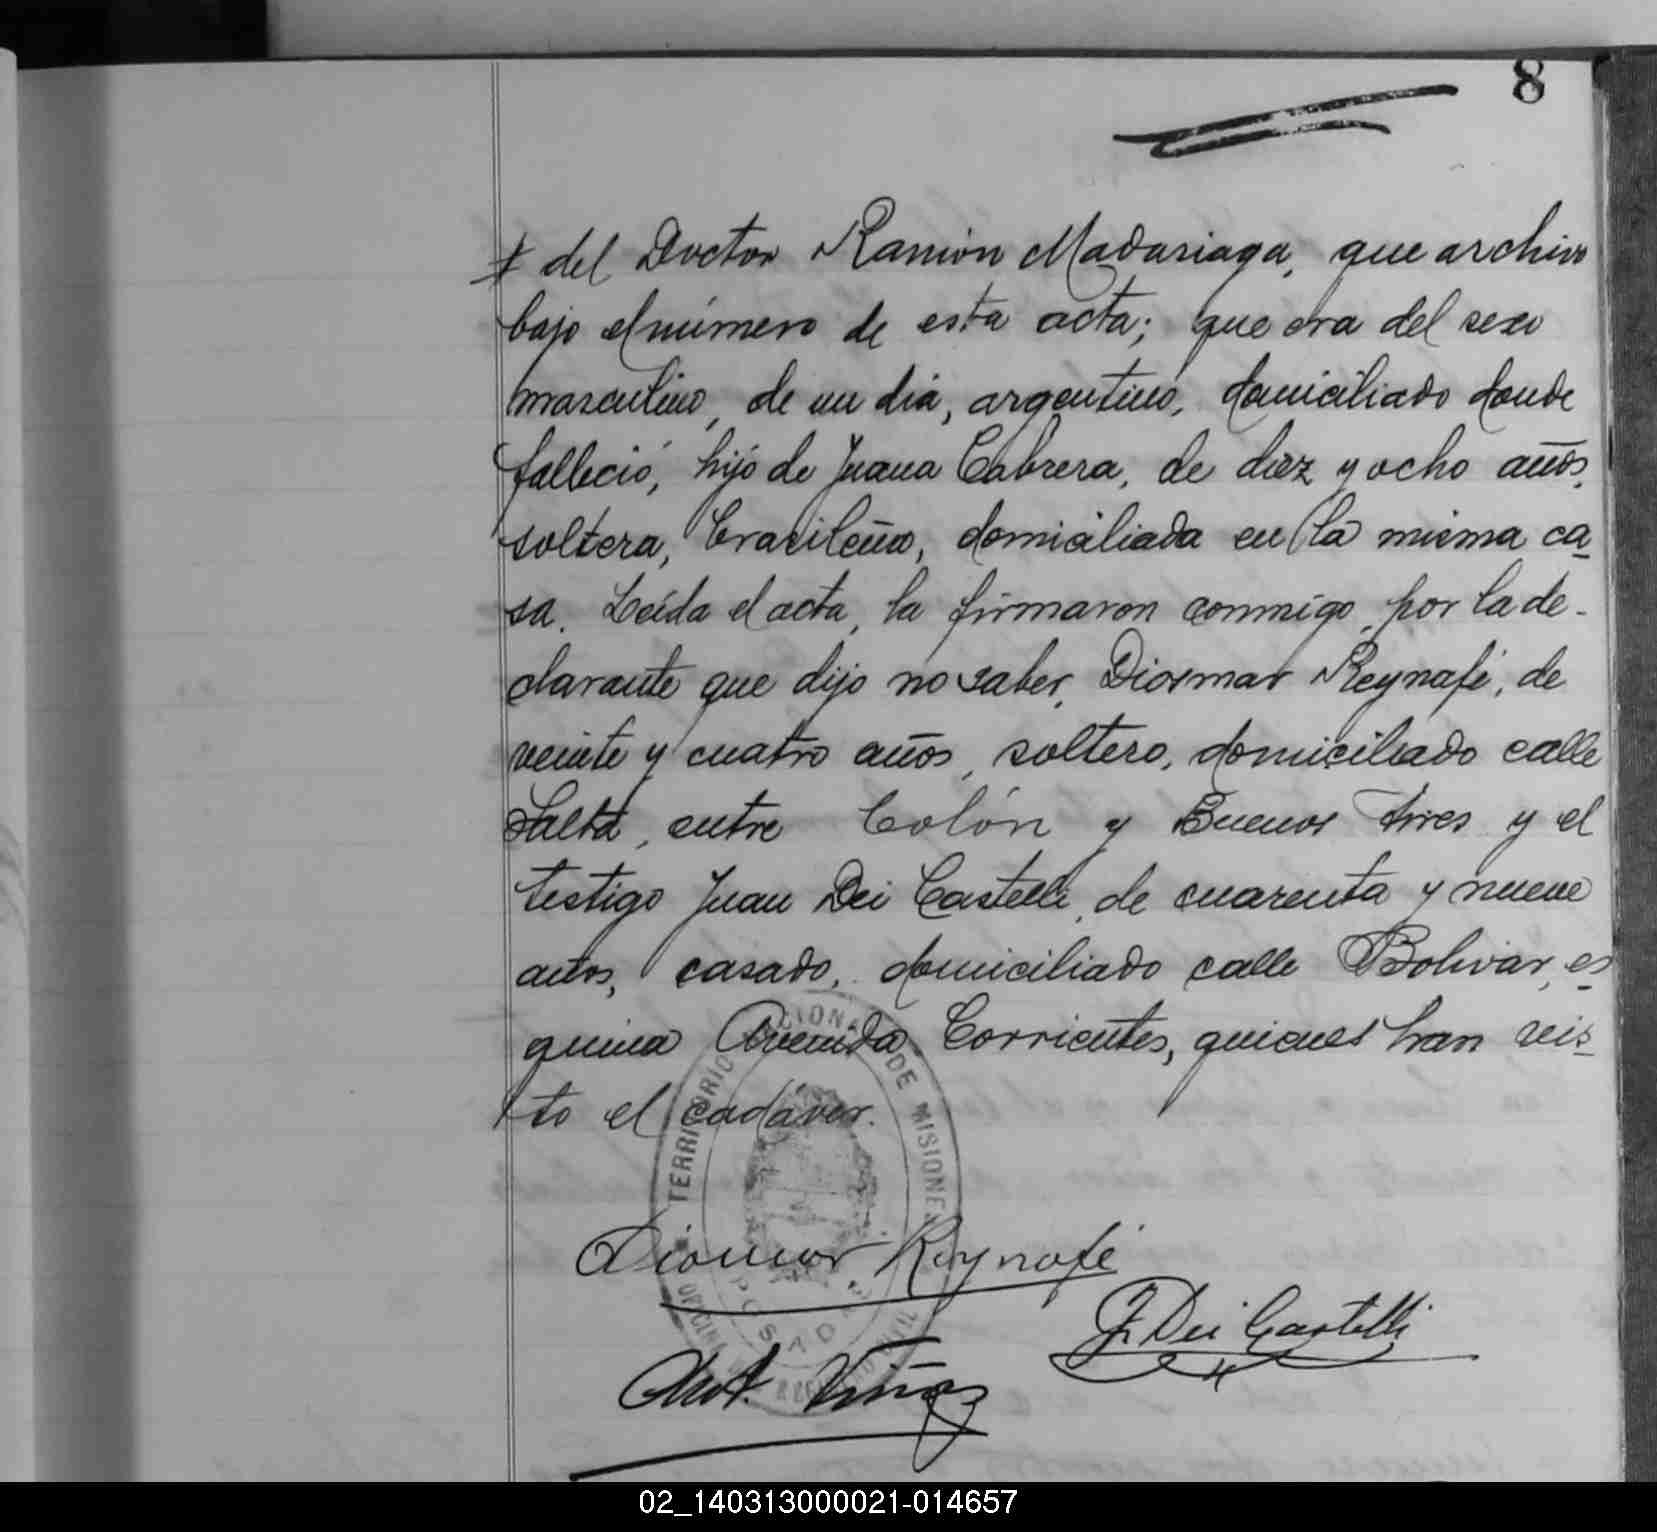 8
del Doctor Ramón Madariaga, que archivo
bajo el número de esta acta; que era del sexo
masculino, de un dia, argentino, domiciliado donde
falleció, hijo de Juana Cabrera, de diez y ocho años,
soltera, brasileña, domiciliada en la misma ca-
sa. Leída el acta, la firmaron conmigo, por la de-
clarante que dijo no saber, Diosmar Reynafé, de
veinte y cuatro años, soltero, domiciliado calle
Salta, entre Colón y Buenos Aires y el
testigo Juan Dei Castelli, de cuarenta y nueve
años, casado, domiciliado calle Bolivar, es-
quina Avenida Corrientes, quienes han vis-
to el cadáver.
TERRITORIO NACIONAL DE MISIONES
POSADAS
Diosmar Reynafé
J. Dei Castelli
Ant. Viñas
02_140313000021-014657